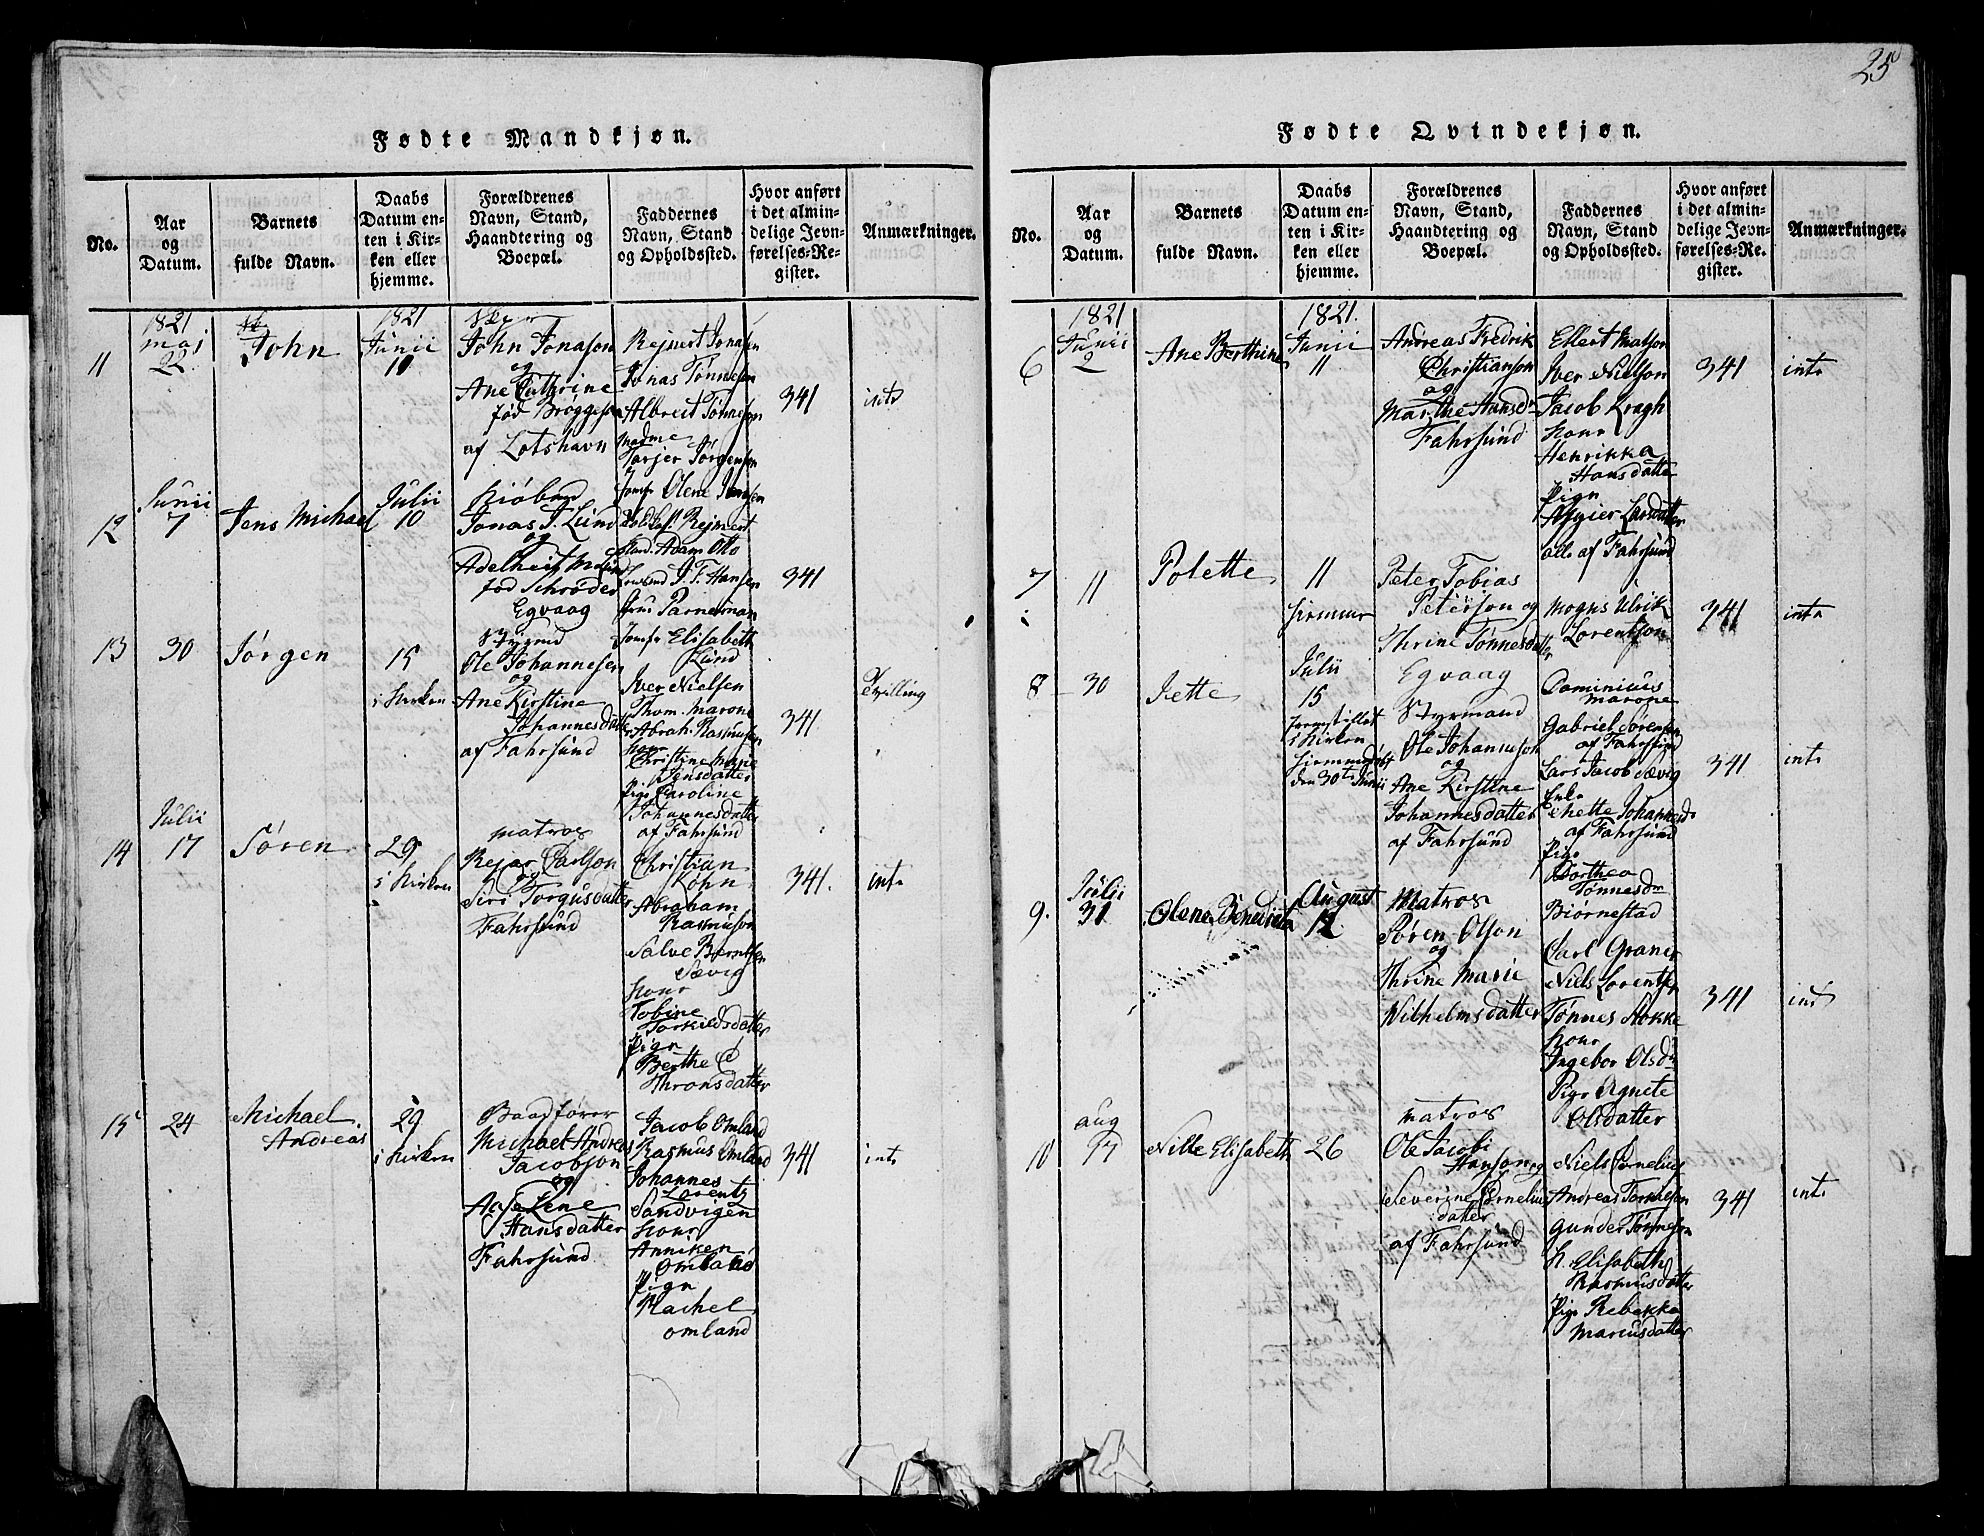 25
Fødte Mandkjøn.
No.
Aar
og
Datum.
Barnets
fulde Navn.
Daabs
Datum en-
ten i Kir-
ken eller
hjemme.
Forældrenes
Navn, Stand,
Haandtering og
Boepæl.
Faddernes
Navn, Stand
og Opholdssted.
Hvor anført
i det almin-
delige Jevn-
førelses-Re-
gister.
Anmærkninger.
11
1821
maj
22
John
1821
Junii
10
John Jonason
og
Ane Cathrine
fød Bröggeson
af Lotshavn
Rejnert Jonasen
Jonas Tønnesen
Albreit Tønnesen
madme
Tarjer Jörgensen
341
int
12
Junii
7
Jens Michael
Julii
10
Jonas J. Lund
og
Adelheit
fød Schrøder
Egvaag
Jomfr Olene
Rejnert
Adam Olo
J. F. Hansen
Parnerman
Jomfr Elisabeth
Lund
341
13
30
Jörgen
15
i Kirken
Ole Johannesen
og
Ane Kirstine
Johannesdatter
af Fahrsund
Iver Nielsen
Thom. Marone
Abrah. Rasmusen
Kone
Christine Marie
Jensdatter
Pige Caroline
Johannesdatter
af Fahrsund
341
Tvilling
14
Julii
17
Søren
29
i Kirken
matros
Rejar Carlson
og
Siri Torgusdatter
Fahrsund
Christian
Köhn
Abraham
Rasmuson
Salve Berntsen
Sævig
Kone
Tobine
Torkildsdatter
Pign
Berthe C
Thronsdatter
341.
int
15
24
Michael
Andreas
29
i Kirken
Baadfører
Michael Andreas
Jacobson
og
Aase Lene
Hansdatter
Fahrsund
Jacob Omland
Rasmus Omland
Johannes
Lorentz
Sandvigen
Kone
Anniken
Omland
Pign
Rachel
omland
341
int
Fødte Qvindekjøn.
No.
Aar
og
Datum.
Barnets
fulde Navn.
Daabs
Datum en-
ten i Kir-
ken eller
hjemme.
Forældrenes
Navn, Stand,
Haandtering og
Boepæl.
Faddernes
Navn, Stand
og Opholdssted.
Hvor anført
i det almin-
delige Jevn-
førelses-Re-
gister.
Anmærkninger.
6
1821
Junii
2
Ane Berthine
1821.
Junii
11
Andreas Fredrik
Christianson
og
Marthe Hansdr
Fahrsund
Ellert Matson
Iver Nielson
Jacob Kragh
Kone
Henrikka
Hansdatter
Pign
Asgier Larsdatter
alle af Fahrsund
341
int
7
11
Polette
11
hiemme
Peter Tobias
Peterson og
Thrine Tønnesdatter
Egvaag
Mogns Ulrik
Lorentson
341
int
8
30
Jette
Julii
15
fremstillet
i Kirken
hiemmedøbt
den 30te Junii
Styrmand
Ole Johanneson
og
Ane Kirstine
Johannesdatter
af Fahrsund
Dominicus
Marone
Gabriel Sørensen
af Fahrsund
Lars Jacob Sævig
Enke
Chette Johannesd
af Fahrsund
Pige
Dorthea
Tønnesdr
Biørnestad
341
int
9.
Julii
31
Olene Benedicta
August
12
Matros
Søren Olson
og
Thrine Marie
Wilhelmsdatter
Carl Graner
Niels Lorentsen
Tønnes Stokke
Kone
Ingebor Olsdr
Pige Agnete
Olsdatter
341
int
10
aug
17
Nille Elisabeth
26
matros
Ole Jacobi
Hanson og
Severine Cornelius
datter
af Fahrsund
Niels Cornelius
Andreas Tønneson
Gunder Tønneson
K. Elisabeth
Rasmusdatter
Pige Rebekka
Mariusdatter
341
int